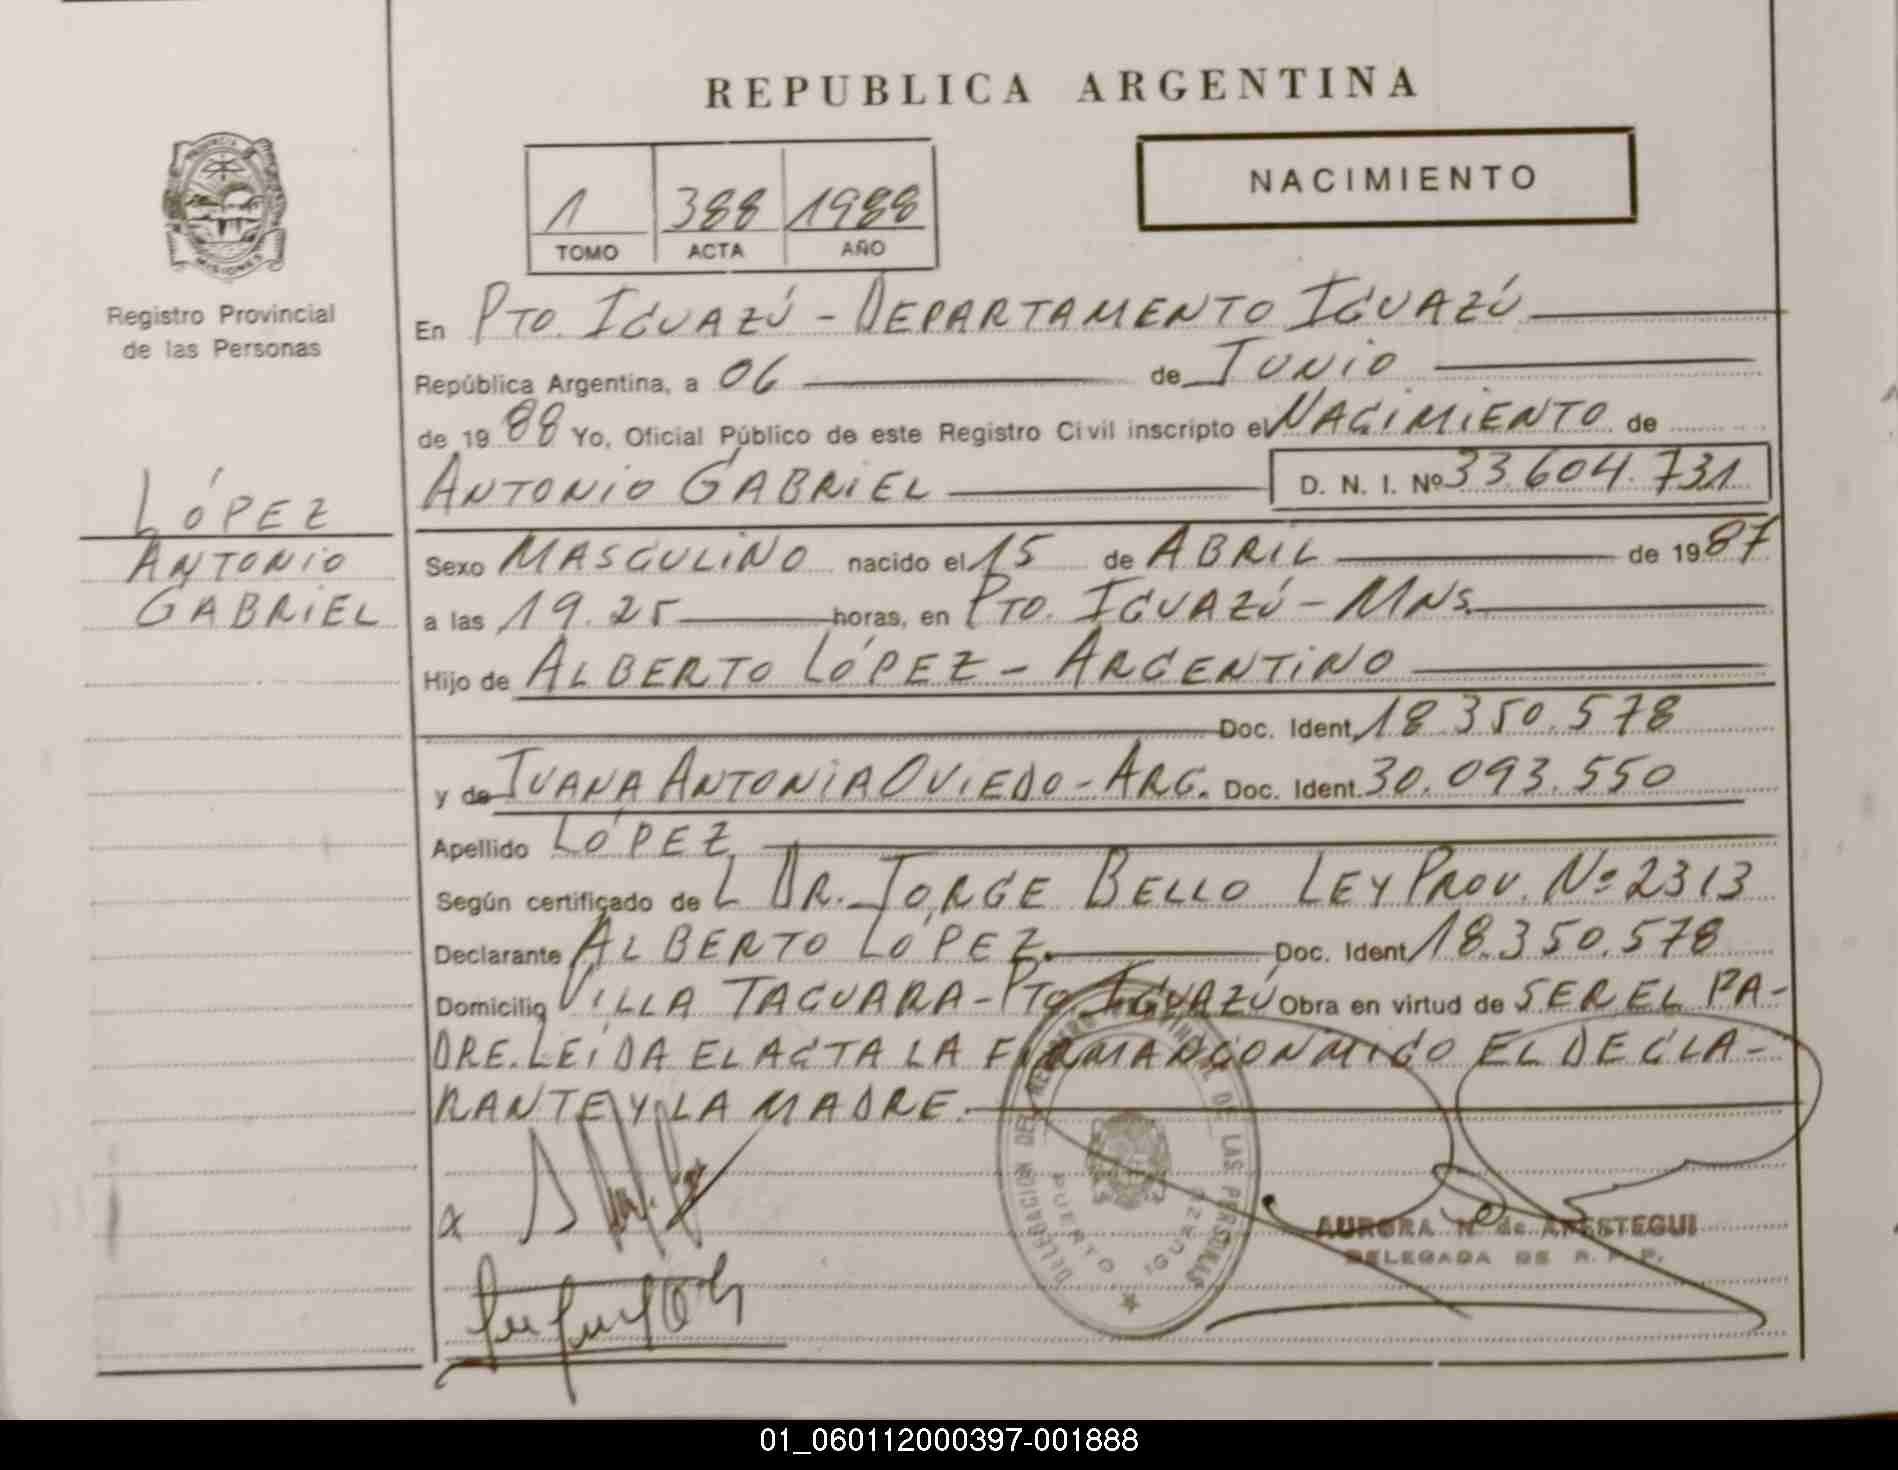 REPUBLICA ARGENTINA
PROVINCIA DE
MISIONES
Registro Provincial
de las Personas
1 388 1988
TOMO ACTA AÑO
NACIMIENTO
En PTO. IGUAZÚ - DEPARTAMENTO IGUAZÚ
República Argentina, a 06 de JUNIO
de 1988 Yo, Oficial Público de este Registro Civil inscripto el NACIMIENTO de
ANTONIO GABRIEL D. N. I. Nº 33.604.731
LÓPEZ
ANTONIO
GABRIEL
Sexo MASCULINO nacido el 15 de ABRIL de 1987
a las 19.25 horas, en PTO. IGUAZÚ - MNS.
Hijo de ALBERTO LÓPEZ - ARGENTINO
Doc. Ident. 18.350.578
y de JUANA ANTONIA OVIEDO - ARG. Doc. Ident. 30.093.550
Apellido LÓPEZ
Según certificado de L DR. JORGE BELLO LEY PROV. Nº 2313
Declarante ALBERTO LÓPEZ. Doc. Ident. 18.350.578
Domicilio VILLA TACUARA - PTO. IGUAZÚ Obra en virtud de SER EL PA-
DRE. LEÍDA EL ACTA LA FIRMAN CONMIGO EL DECLA-
RANTE Y LA MADRE.
DELEGACION DEL REGISTRO PROVINCIAL DE LAS PERSONAS
PUERTO IGUAZU
AURORA N. de ARESTEGUI
DELEGADA DE R. P. P.
01_060112000397-001888